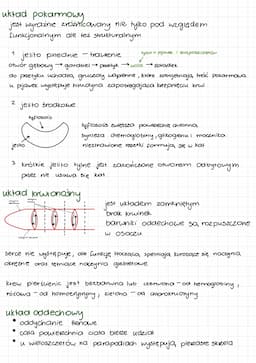 układ pokarmowy
jest wyraźnie zróżnicowany nie tylko pod względem
funkcjonalnym ale też strukturalnym
1 jelito przednie - trawienie
otwór gębowy → gardziel → przełyk → wole → żołądek
do przełyku uchodzą gruczoły wapienne, które
u pijawek występuje hirudyna zapobiegająca krzepnięciu krwi
2 jelito środkowe
tyflosolis
jelito
tyflosolis zwiększa powierzchnię wchłaniania,
synteza chemoglobiny, glikogenu i mocznika
niestrawione resztki formują się w kał
3 krótkie jelito tylne jest zakończone otworem odbytowym
przez nie usuwa się kał
układ krwionośny
jest układem zamkniętym
brak krwinek
barwniki oddechowe są rozpuszczone
w osoczu
serce nie występuje, ale funkcję tłoczącą spełniają kurczące się naczynia
okrężne oraz tętniące naczynie grzbietowe
krew pierścienic jest bezbarwna lub czerwona - od hemoglobiny,
różowa - od hemoerytryny, zielona - od chlorokruoryny
układ oddechowy
• oddychanie tlenowe
• cała powierzchnia ciała bierze udział
• u wieloszczetów na parapodiach występują pierzaste skrzela